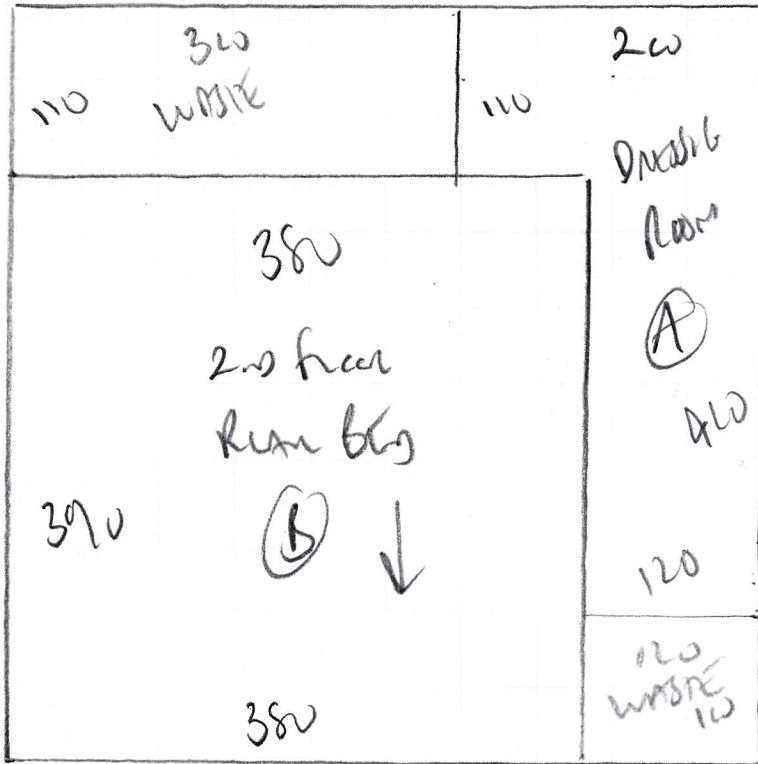 300
110 WASTE
200
110
DRESSING
ROOM
A
400
120
380
2ND FLOOR
REAR BED
390
B
380
120
WASTE
100